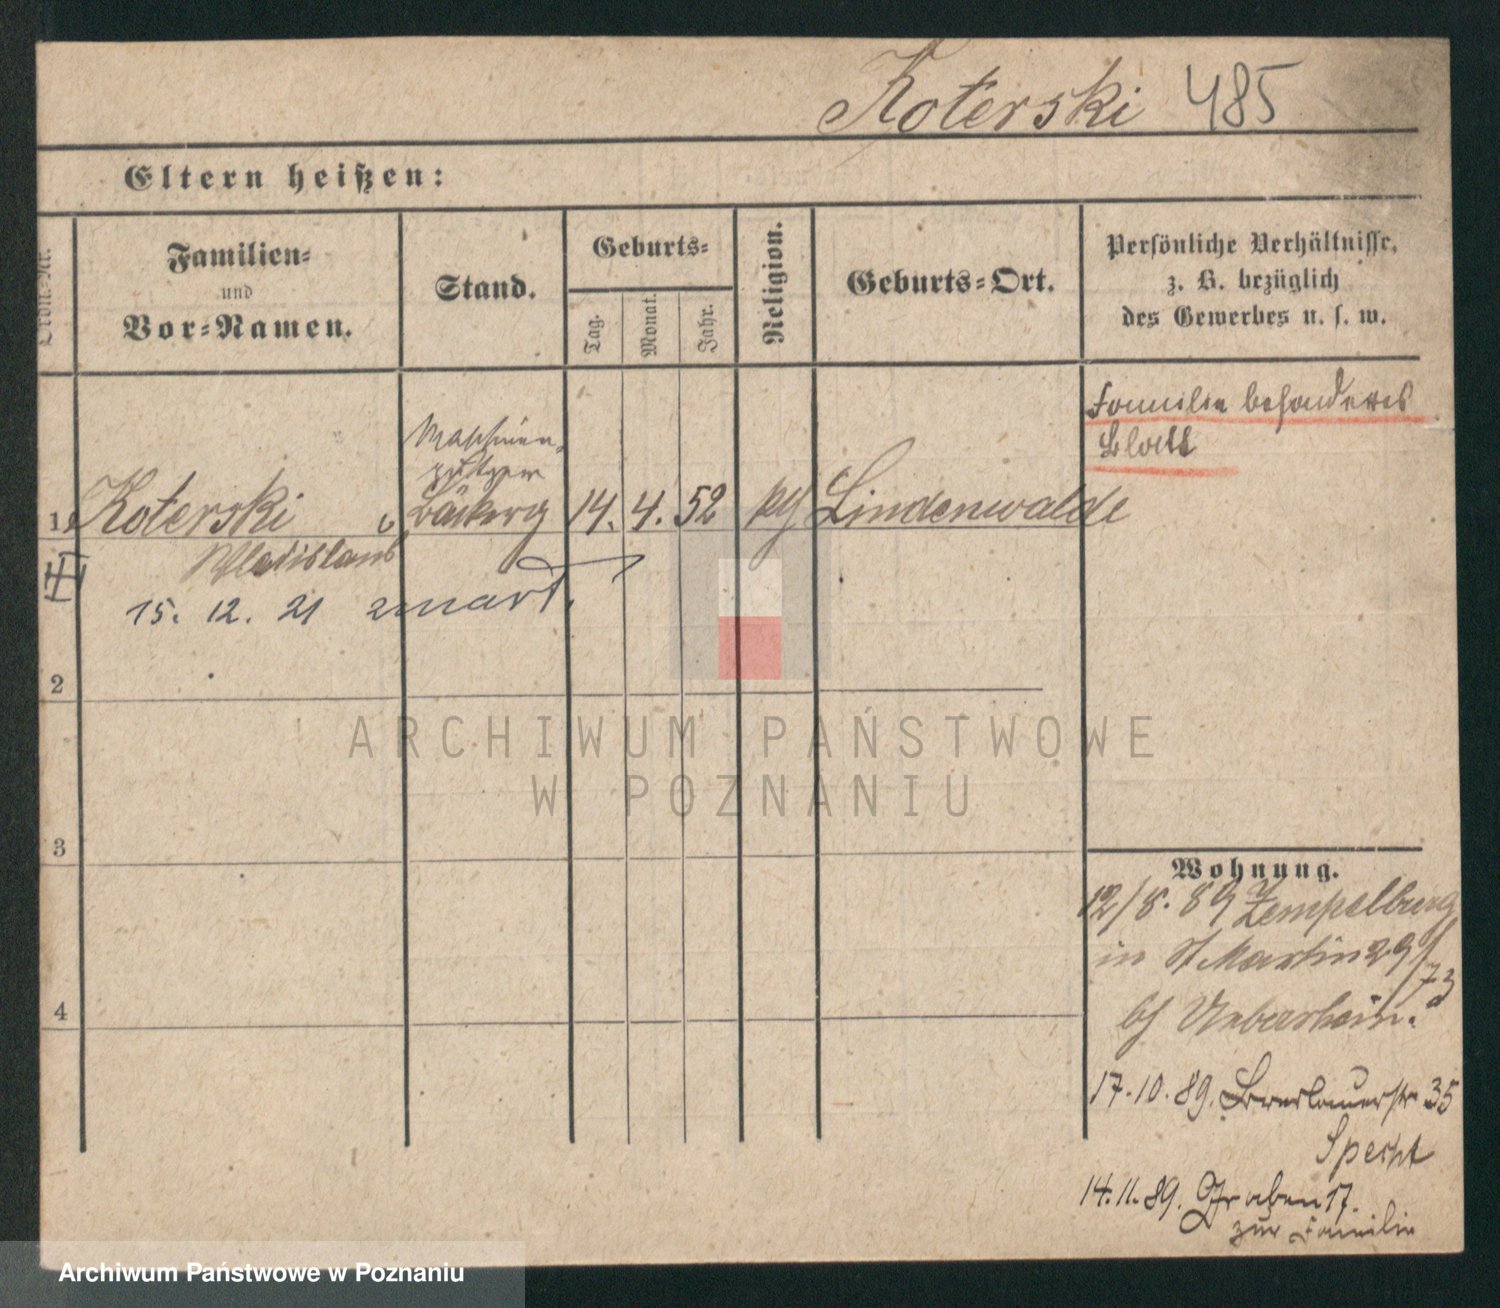 Koterski 485
Eltern heißen:
Ordn.-Nr.
Familien-
und
Vor-Namen.
Stand.
Geburts-
Tag.
Monat.
Jahr.
Religion.
Geburts-Ort.
Persönliche Verhältnisse,
z. B. bezüglich
des Gewerbes u. s. w.
Familie besonderes
Blatt
Maschinen-
putzer
1 Koterski Bäckerg 14. 4. 52 kth Lindenwalde
Wladislaus
15. 12. 21 zmarł.
2
3
4
Wohnung.
12/8. 89 Zempelburg
in St Martin 29
73
bei
17. 10. 89. Breslauerstr 35
Specht
14. 11. 89. Graben 17.
zur Familie
ARCHIWUM PAŃSTWOWE
W POZNANIU
Archiwum Państwowe w Poznaniu